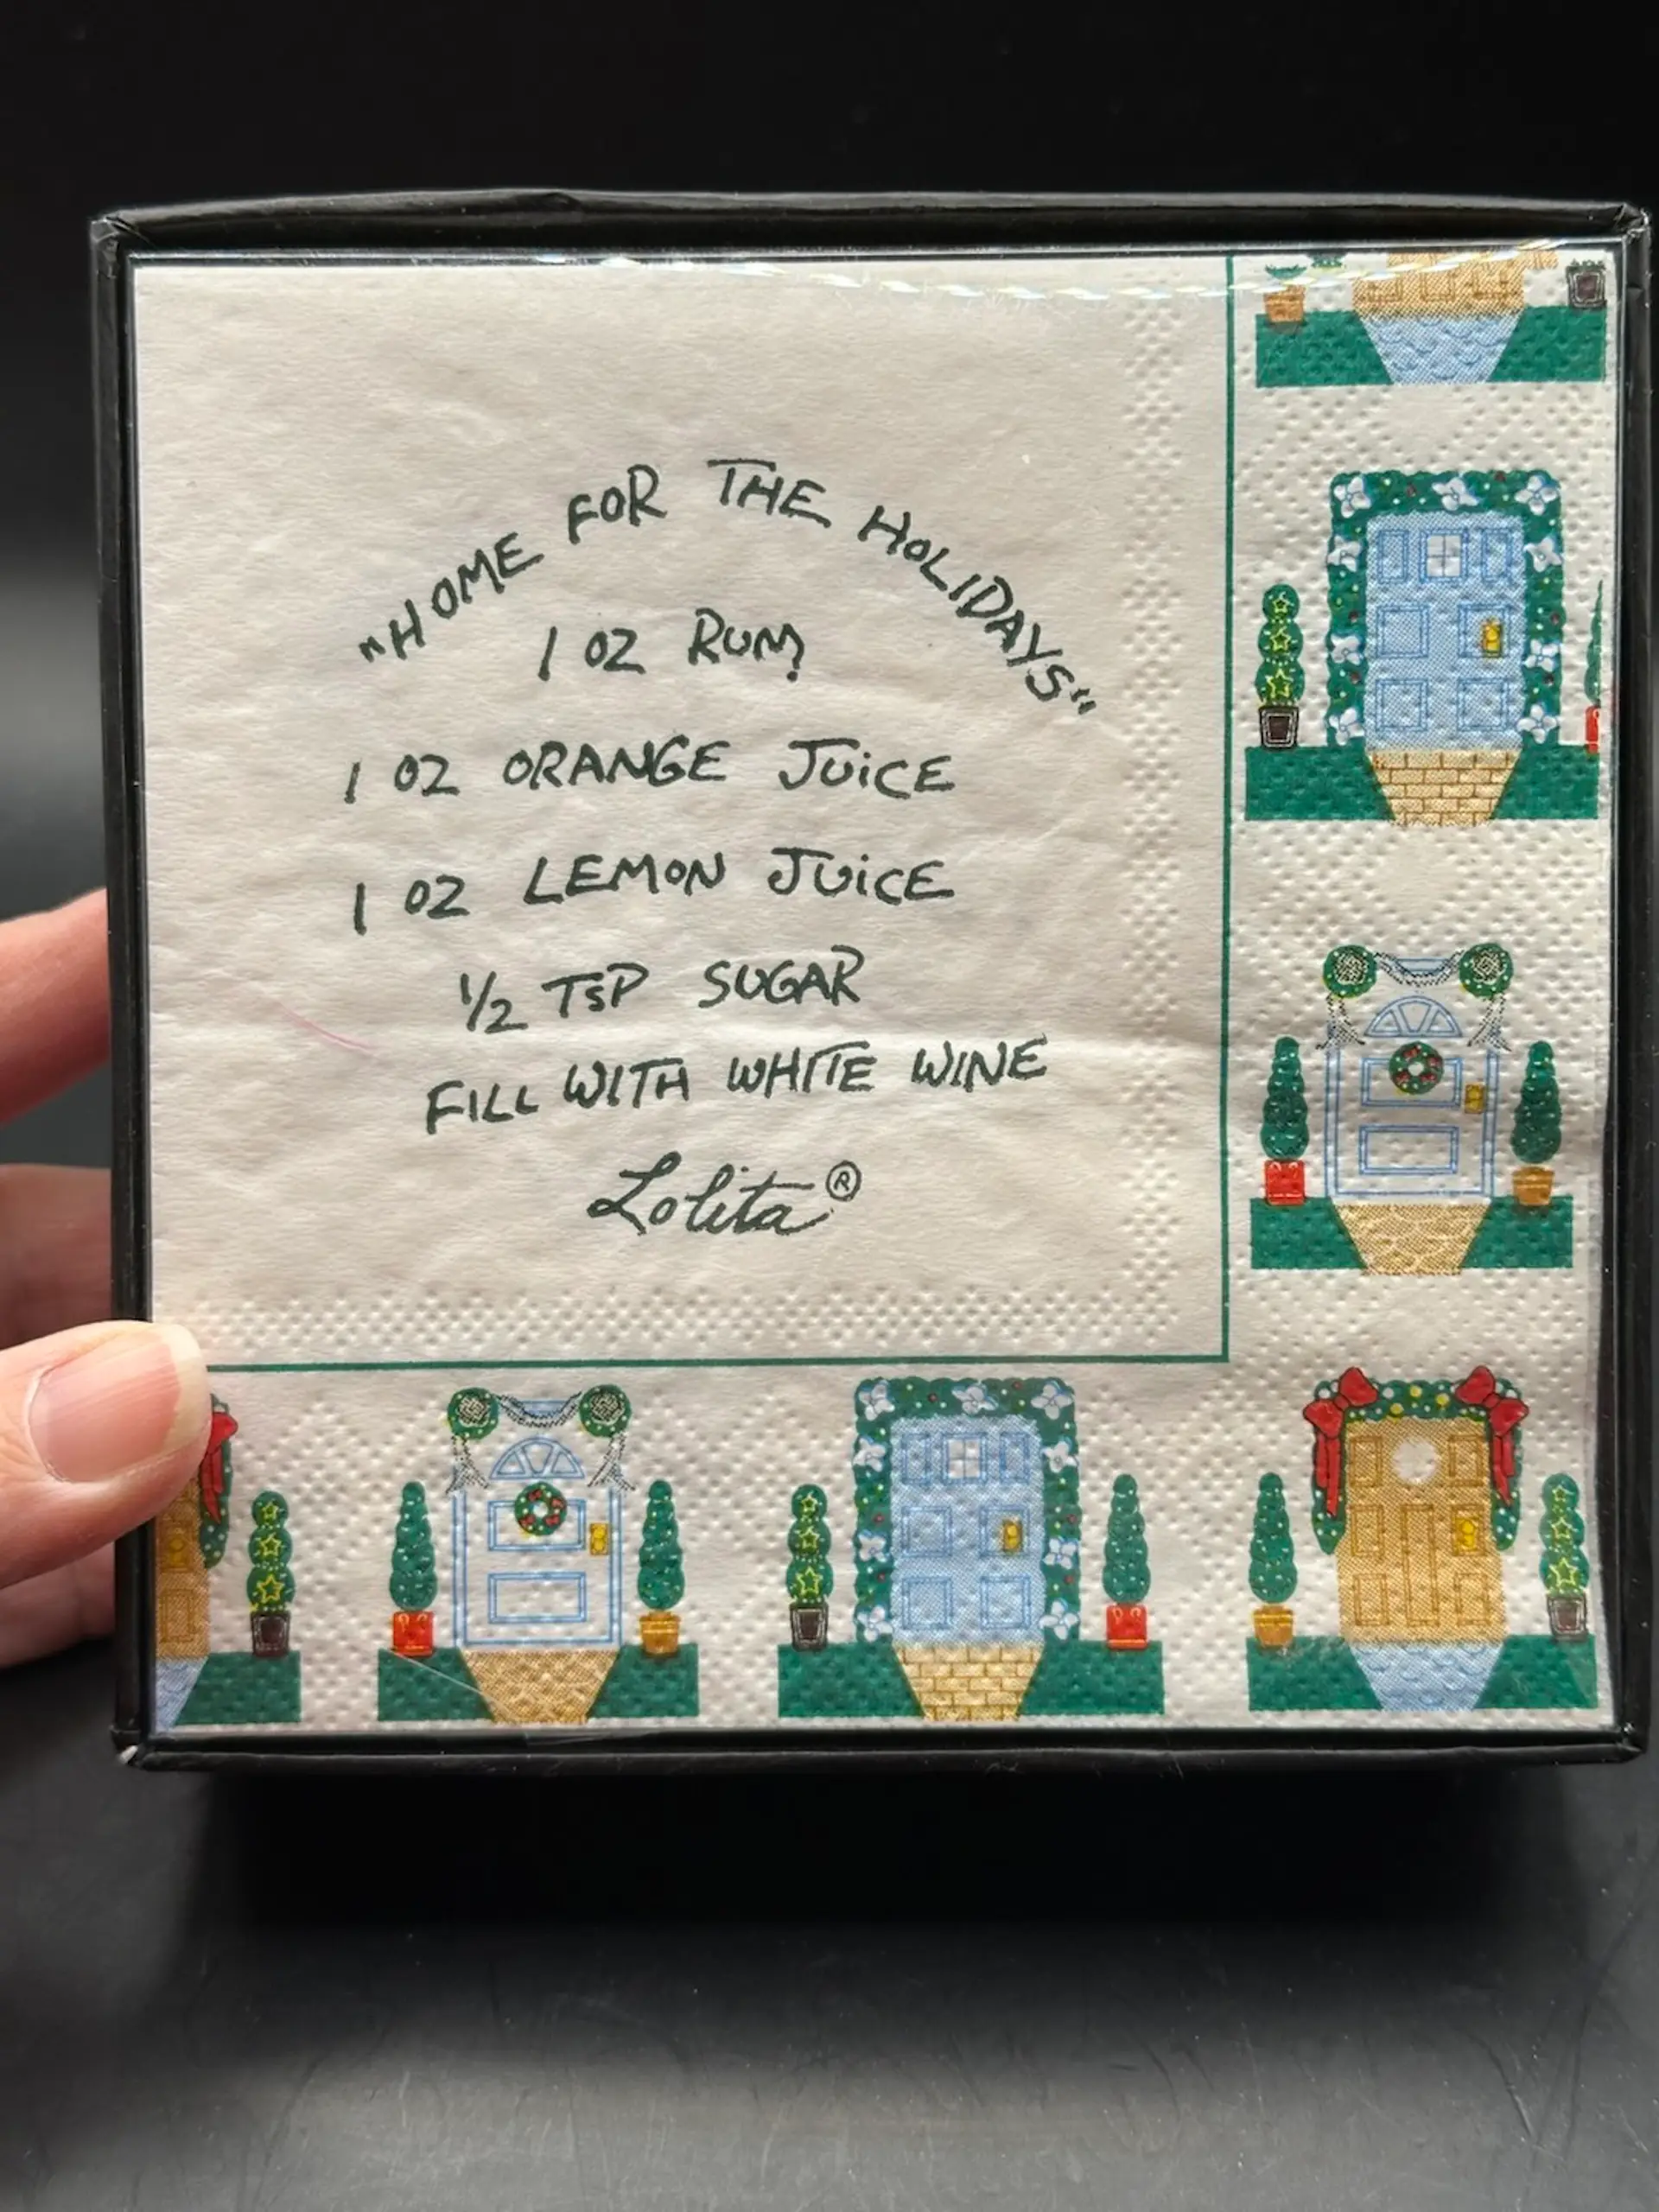 "HOME FOR THE HOLIDAYS"
1 OZ RUM
1 OZ ORANGE JUiCE
1 OZ LEMON JUiCE
1/2 TSP SUGAR
FILL WITH WHITE WINE
Lolita®